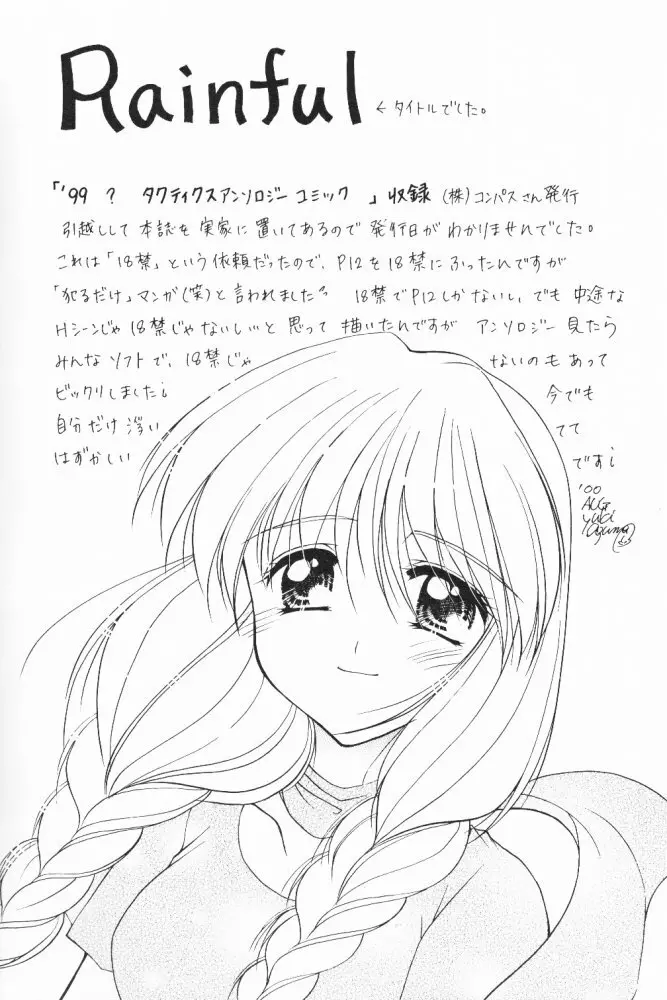 Rainful ←タイトルでした。
「'99 ? タクティクスアンソロジーコミック 」収録 (株)コンパスさん発行
引越しして本誌を実家に置いてあるので発行日がわかりませんでした。
これは「18禁」という依頼だったので、P12を18禁にふったんですが
「犯るだけ」マンガ(笑)と言われました 18禁でP12しかないし、でも中途な
Hシーンじゃ18禁じゃないし…と思って描いたんですがアンソロジー見たら
みんなソフトで、18禁じゃ ないのもあって
ビックリしました¡ 今でも
自分だけ浮い てて
はずかしい です¡
'00
AUG
yuki